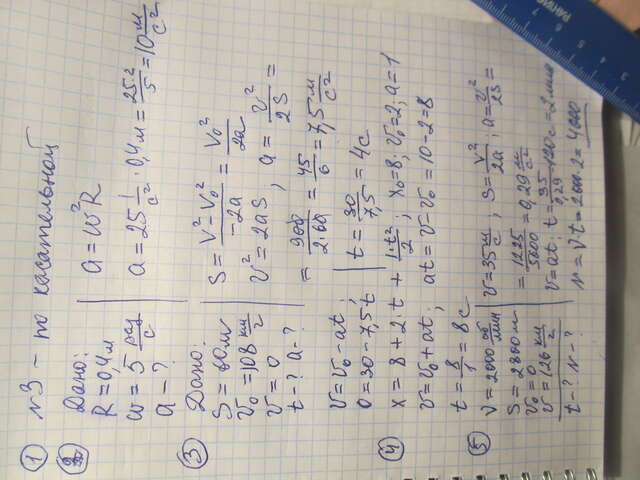 1 N3 – по касательной
2 Дано:
R = 0,4 м
ω = 5 рад/с
a – ?
a = ω²R
a = 25 1/с² · 0,4 м = 25·2/5 = 10 м/с²
3 Дано:
S = 60 м
v₀ = 108 км/ч
v = 0
t – ? a – ?
S = (V² – V₀²)/(–2a) = V₀²/2a
v² = 2aS , a = v²/2S =
= 900/(2·60) = 45/6 = 7,5 м/с²
v = v₀ – at ;
0 = 30 – 7,5t
t = 30/7,5 = 4 с
4 x = 8 + 2·t + 1·t²/2 ; x₀=8; v₀=2; a=1
v = v₀ + at ; at = v – v₀ = 10 – 2 = 8
t = 8/1 = 8 с
5 ν = 2000 об/мин
S = 2800 м
v₀ = 0
v = 126 км/ч
t – ? N – ?
v = 35 м/с , S = v²/2a ; a = v²/2S =
= 1225/5600 = 0,29 м/с²
v = at ; t = 35/0,29 = 120 с = 2 мин
N = ν·t = 2000·2 = 4000